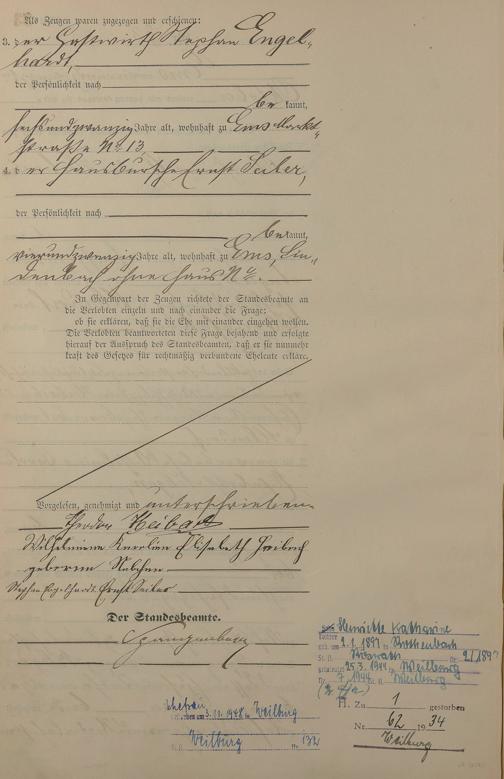 Als Zeugen waren zugezogen und erschienen:
3. der Gastwirth Stephan Engel-
hardt,
der Persönlichkeit nach
be kannt,
sechsundzwanzig Jahre alt, wohnhaft zu Ems, Markt-
straße No 13
4. der Hausbursche Ernst Seiler,
der Persönlichkeit nach
be kannt,
vierundzwanzig Jahre alt, wohnhaft zu Ems, Lin-
denbach ohne Haus No.
In Gegenwart der Zeugen richtete der Standesbeamte an
die Verlobten einzeln und nach einander die Frage:
ob sie erklären, daß sie die Ehe mit einander eingehen wollen.
Die Verlobten beantworteten diese Frage bejahend und erfolgte
hierauf der Ausspruch des Standesbeamten, daß er sie nunmehr
kraft des Gesetzes für rechtmäßig verbundene Eheleute erkläre.
Vorgelesen, genehmigt und unterschrieben
Theodor Heibach
Wilhelmine Karoline Elisabeth Heibach
geborene
Stephan Engelhardt Ernst Seiler
Der Standesbeamte.
Henriette Katharine
Tochter
geb. am 2.1.1897 in
St. A. Nr. 2/1897
25.3.1944 in Weilburg
Nr. 7/1944 Weilburg
H. Zu 1 gestorben
Nr. 62 1934
Weilburg
Ehefrau
gestorben am 3.11.1948 in Weilburg
St. A. Weilburg Nr. 132